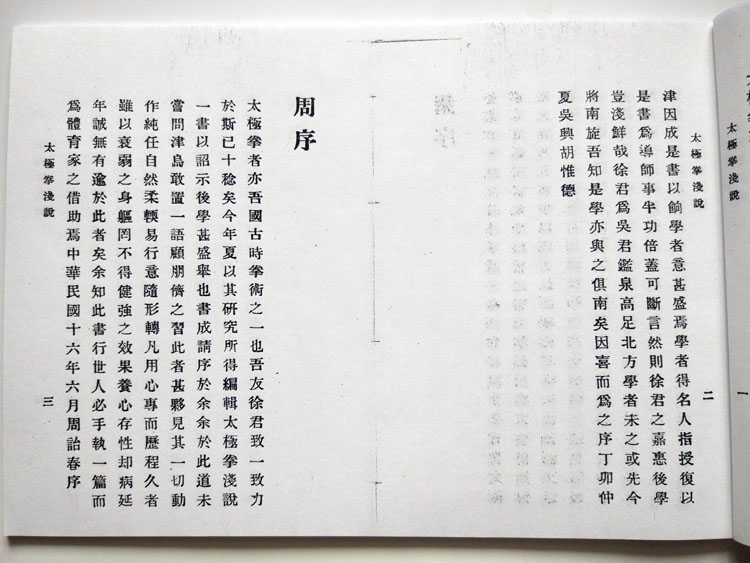 太極拳淺說
一
太極拳淺說
二
津因成是書以餉學者意甚盛焉學者得名人指授復以
是書爲導師事半功倍蓋可斷言然則徐君之嘉惠後學
豈淺鮮哉徐君爲吳君鑑泉高足北方學者未之或先今
將南旋吾知是學亦與之俱南矣因喜而爲之序丁卯仲
夏吳興胡惟德
周序
太極拳者亦吾國古時拳術之一也吾友徐君致一致力
於斯已十稔矣今年夏以其研究所得編輯太極拳淺說
一書以詔示後學甚盛舉也書成請序於余余於此道未
嘗問津烏敢置一語顧朋儕之習此者甚夥見其一切動
作純任自然柔輭易行意隨形轉凡用心專而歷程久者
雖以衰弱之身軀罔不得健強之效果養心存性却病延
年誠無有逾於此者矣余知此書行世人必手執一篇而
爲體育家之借助焉中華民國十六年六月周詒春序
太極拳淺說
三